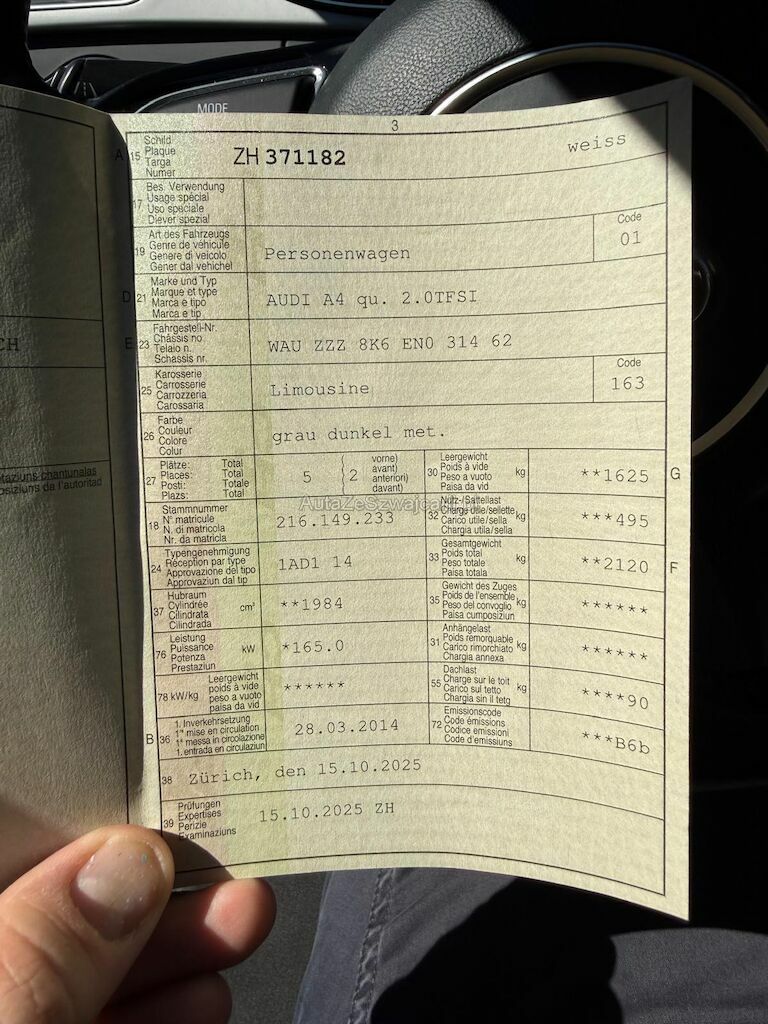 MODE
3
A 15 Schild
Plaque
Targa
Numer
ZH 371182 weiss
17 Bes. Verwendung
Usage spécial
Uso speciale
Diever spezial
19 Art des Fahrzeugs
Genre de véhicule
Genere di veicolo
Gener dal vehichel
Personenwagen
Code
01
D 21 Marke und Typ
Marque et type
Marca e tipo
Marca e tip
AUDI A4 qu. 2.0TFSI
E 23 Fahrgestell-Nr.
Châssis no
Telaio n.
Schassis nr.
WAU ZZZ 8K6 EN0 314 62
25 Karosserie
Carrosserie
Carrozzeria
Carossaria
Limousine
Code
163
26 Farbe
Couleur
Colore
Colur
grau dunkel met.
27 Plätze: Total
Places: Total
Posti: Totale
Plazs: Total
5 2 vorne)
avant)
anteriori)
davant)
30 Leergewicht
Poids à vide
Peso a vuoto
Paisa da vid
kg **1625 G
18 Stammnummer
N° matricule
N. di matricola
Nr. da matricla
216.149.233
32 Nutz-/Sattellast
Charge utile/sellette
Carico utile/sella
Chargia utila/sella
kg ***495
24 Typengenehmigung
Réception par type
Approvazione del tipo
Approvaziun dal tip
1AD1 14
33 Gesamtgewicht
Poids total
Peso totale
Paisa totala
kg **2120 F
37 Hubraum
Cylindrée
Cilindrata
Cilindrada
cm³ **1984
35 Gewicht des Zuges
Poids de l'ensemble
Peso del convoglio
Paisa cumposiziun
kg ******
76 Leistung
Puissance
Potenza
Prestaziun
kW *165.0
31 Anhängelast
Poids remorquable
Carico rimorchiato
Chargia annexa
kg ******
78 kW/kg Leergewicht
poids à vide
peso a vuoto
paisa da vid
******
55 Dachlast
Charge sur le toit
Carico sul tetto
Chargia sin il tetg
kg ****90
B 36 1. Inverkehrsetzung
1re mise en circulation
1a messa in circolazione
1. entrada en circulaziun
28.03.2014
72 Emissionscode
Code émissions
Codice emissioni
Code d'emissiuns
***B6b
38 Zürich, den 15.10.2025
39 Prüfungen
Expertises
Perizie
Examinaziuns
15.10.2025 ZH
CH